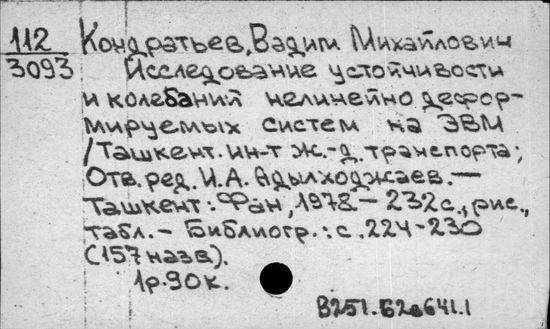 112
3093
Кондратьев, Вадим Михайлович
Исследование устойчивости
и колебаний нелинейно дефор-
мируемых систем на ЭВМ
/Ташкент. ин-т ж.-д. транспорта;
Отв. ред. И.А. Адылходжаев.—
Ташкент: Фан, 1978 – 232 с., рис.,
табл. – Библиогр.: с. 224-230
(157 назв).
1р. 90к.
В251.Б2в641.1